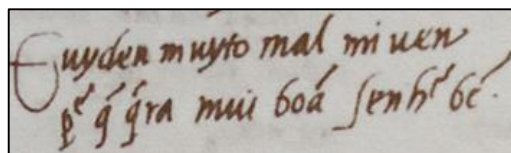 Euyden muyto mal mi uen
p̱ᵉ q̃ q̃ra mui boã senhʳ bẽ.